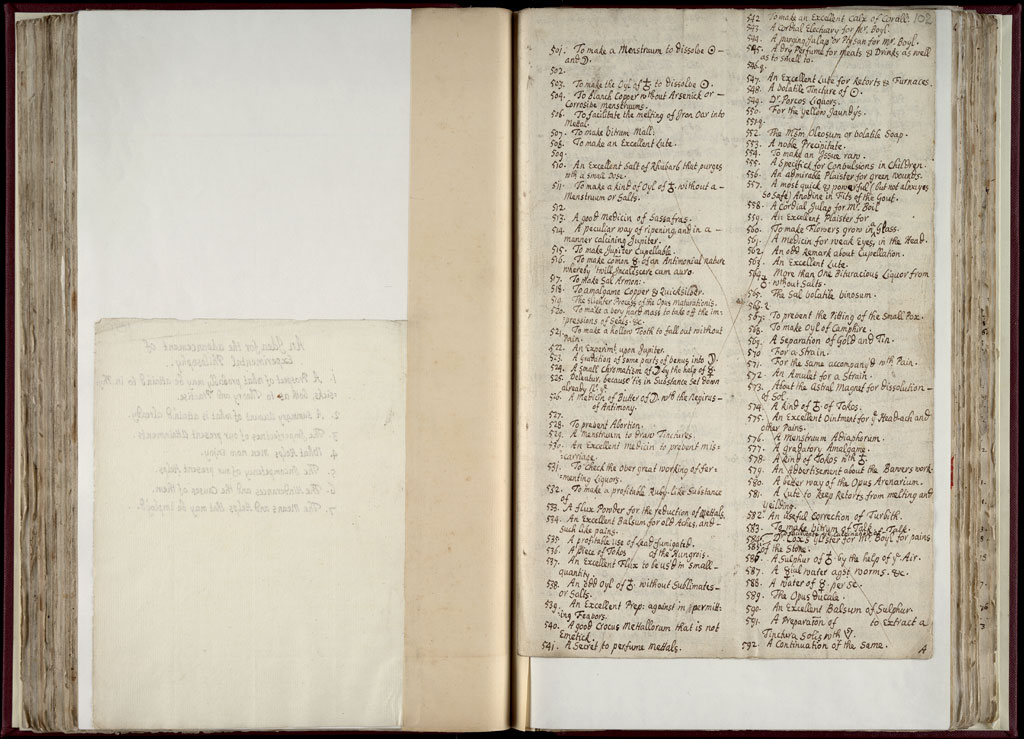 501. To make a Menstruum to dissolve ☉
and ☽.
502.
503. To make the Oyl of ♁ to dissolve ☉.
504. To blanch Copper without Arsenick or
Corrosive menstruums.
506. To facilitate the melting of Iron Oar into
Metal.
507. To make Vitrum Mall:
508. To make an Excellent Lute.
509.
510. An Excellent Salt of Rhubarb that purges
with a small Dose.
511. To make a kind of Oyl of ♁ without a
Menstruum or Salts.
512.
513. A good Medicin of Sassafras.
514. A peculiar way of ripening, and in a
manner calcining Jupiter.
515. To make Jupiter Cupellable.
516. To make comon ☿ of an Antimonial nature
whereby 'twill Incalescere cum auro.
517. To Make Sal Armon:
518. To amalgame Copper & Quicksilver.
519. The Process of the Opus maturationis.
520. To make a very hard mass to take off the im-
pressions of Seals. &c.
521. To make a hollow Tooth to fall out without
Pain.
522. An Experimt upon Jupiter.
523. A gradation of some parts of Venus into ☽.
524. A small Chromatism of ☽ by the help of ☿.
525. Deleatur, because tis in Substance set down
already
526. A Medicin of Butter of ☽ with the Regulus
of Antimony.
527.
528. To prevent Abortion.
529. A Menstruum to draw Tinctures.
530. An Excellent medicin to prevent mis-
carriage.
531. To check the over great working of fer-
menting Liquors.
532. To make a profitable Ruby-like Substance
of
533. A Flux Powder for the reduction of Mettals.
534. An Excellent Balsum for old Aches, and
such like pains.
535. A profitable use of Lead fumigated.
536. A piece of Tokos of the Hungrois.
537. An Excellent Flux to be us'd in small
quantity.
538. An odd Oyl of ♁ without Sublimates
or Salts.
539. An Excellent Prep: against intermitt-
ing Feavors.
540. A good Crocus Mettallorum that is not
Emetick.
541. A Secret to perfume Mettals.
102
542. To make an Excellent Calx of Corall.
543. A Cordial Electuary for Mr. Boyl.
544. A purging Julap or Ptysan for Mr. Boyl.
545. A Dry Perfume for meats & Drinks as well
as to smell to.
546.
547. An Excellent Lute for Retorts & Furnaces.
548. A Volatile Tincture of ☉.
549. Dr. Porcos Liquors.
550. For the yellow Jaundys.
551.
552. The Oleosum or Volatile Soap.
553. A noble Precipitate.
554. To make an Issue raw.
555. A Specifick for Convulsions in Children.
556. An admirable Plaister for Green wounds.
557. A most quick & powerful (but not always
so safe) Anodine in Fits of the Gout.
558. A Cordial Julap for Mr. Boil
559. An Excellent Plaister for
560. To make Flowers grow in a Glass.
561. A Medicin for weak Eyes, in the Head.
562. An odd Remark about Cupellation.
563. An Excellent Lute.
564. More than One Bituracious Liquor from
♁ without Salts.
565. The Sal volatile vinosum.
566.
567. To prevent the Pitting of the Small Pox.
568. To make Oyl of Camphire.
569. A Separation of Gold and Tin.
570 For a Strain.
571. For the same accompany'd with Pain.
572. An Amulet for a Strain.
573. About the Astral Magnet for Dissolution
of Sol.
574. A kind of ♁ of Tokos.
575. An Excellent Ointment for ye Head-ach and
other Pains.
576. A Menstruum Adiaphorum.
577. A gradatory Amalgame.
578. A kind of Tokos with ♁
579. An Advertisement about the Banvers work.
580. A better way of the Opus Arenarium.
581. A Lute to keep Retorts from melting and
yeilding.
582. An useful Correction of Turbith.
583. To make Vitrum of Talk
584. Dr Cox's Glister for Mr. Boyl for pains
585. of the Stone.
586. A Sulphur of ♁ by the help of ye Air.
587. A water agst. worms. &c.
588. A water of ☿ per se.
589. The Opus Ducale.
590. An Excellent Balsum of Sulphur.
591. A Preparaton of to extract a
Tinctura Solis with
592. A Continuation of the Same.
A